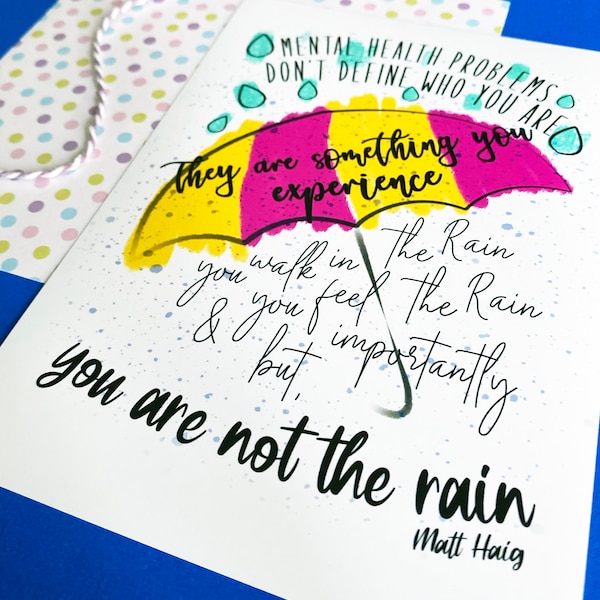 MENTAL HEALTH PROBLEMS
DON'T DEFINE WHO YOU ARE
They are something you
experience
you walk in The Rain
you feel The Rain
& but, importantly
you are not the rain
Matt Haig